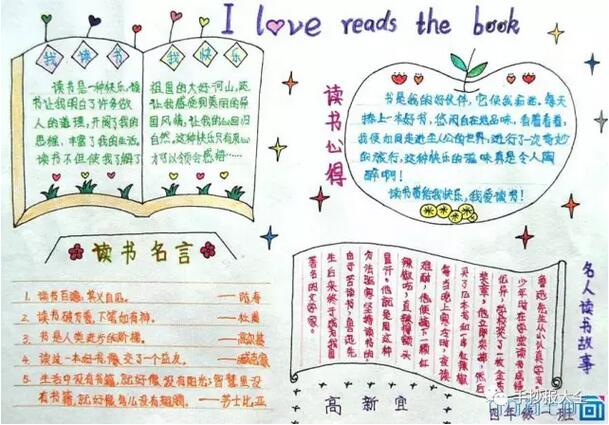 I love reads the book
我 读 书 我 快 乐
读书是一种快乐,读
书让我明白了许多做
人的道理,开阔了我的
思维,丰富了我的生活。
读书不但使我了解了
祖国的大好河山,还
让我感受到美丽的异
国风情,让我的心回归
自然,这种快乐只有用心
才可以领会感悟……
读书心得
书是我的好伙伴,它使我奋进。每天
捧上一本好书,悠闲自在地品味,看着看着,
我便如同走进主人公的世界,进行了一次奇妙
的旅行,这种快乐的滋味真是令人陶
醉啊!
读书带给我快乐,我爱读书!
读书名言
1. 读书百遍,其义自见。——陆寿
2. 读书破万卷,下笔如有神。——杜甫
3. 书是人类进步的阶梯。——高尔基
4. 读一本好书,像交了一个益友。——臧克家
5. 生活中没有书籍,就好像没有阳光;智慧里没
有书籍,就好像鸟儿没有翅膀。——莎士比亚
名人读书故事
鲁迅先生从小认真学习。
少年时,在学堂读书成绩
优异,学校奖了一枚金质
奖章,他立即卖掉,然后
买了几本书和一串红辣椒
每当晚上寒冷时,夜读
难耐,他便摘下一颗红
辣椒吃,直辣得额头
冒汗。他就是用这种
方法驱寒坚持读书的。
由于苦读书,鲁迅先
生后来终于成为我国
著名的文学家。
高新宜
四年级一班
手抄报大全